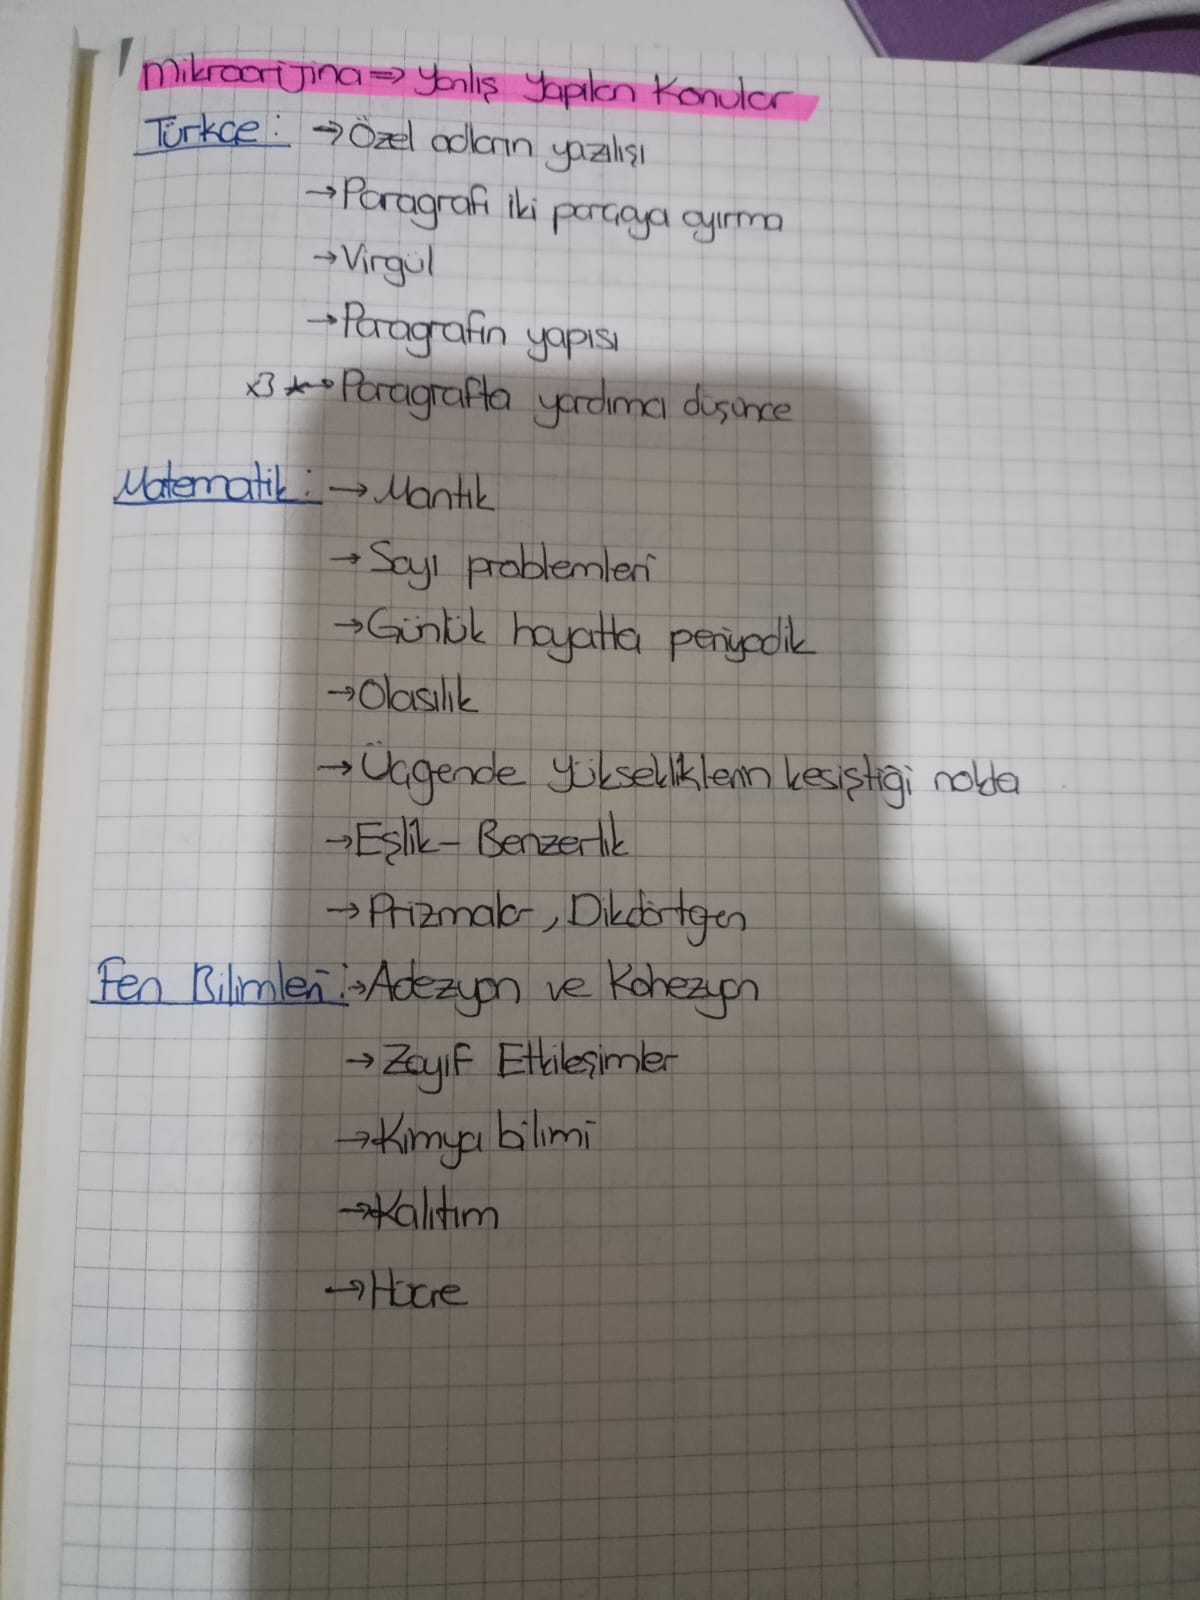 mikroorijina ⇒ yanlış yapılan konular
Türkçe: → Özel adların yazılışı
→ Paragrafı iki parçaya ayırma
→ Virgül
→ Paragrafın yapısı
x3 ★→ Paragrafta yardımcı düşünce
Matematik: → Mantık
→ Sayı problemleri
→ Günlük hayatta periyodik
→ Olasılık
→ Üçgende yüksekliklerin kesiştiği nokta
→ Eşlik - Benzerlik
→ Prizmalar, Dikdörtgen
Fen Bilimleri: → Adezyon ve Kohezyon
→ Zayıf Etkileşimler
→ Kimya bilimi
→ Kalıtım
→ Hücre